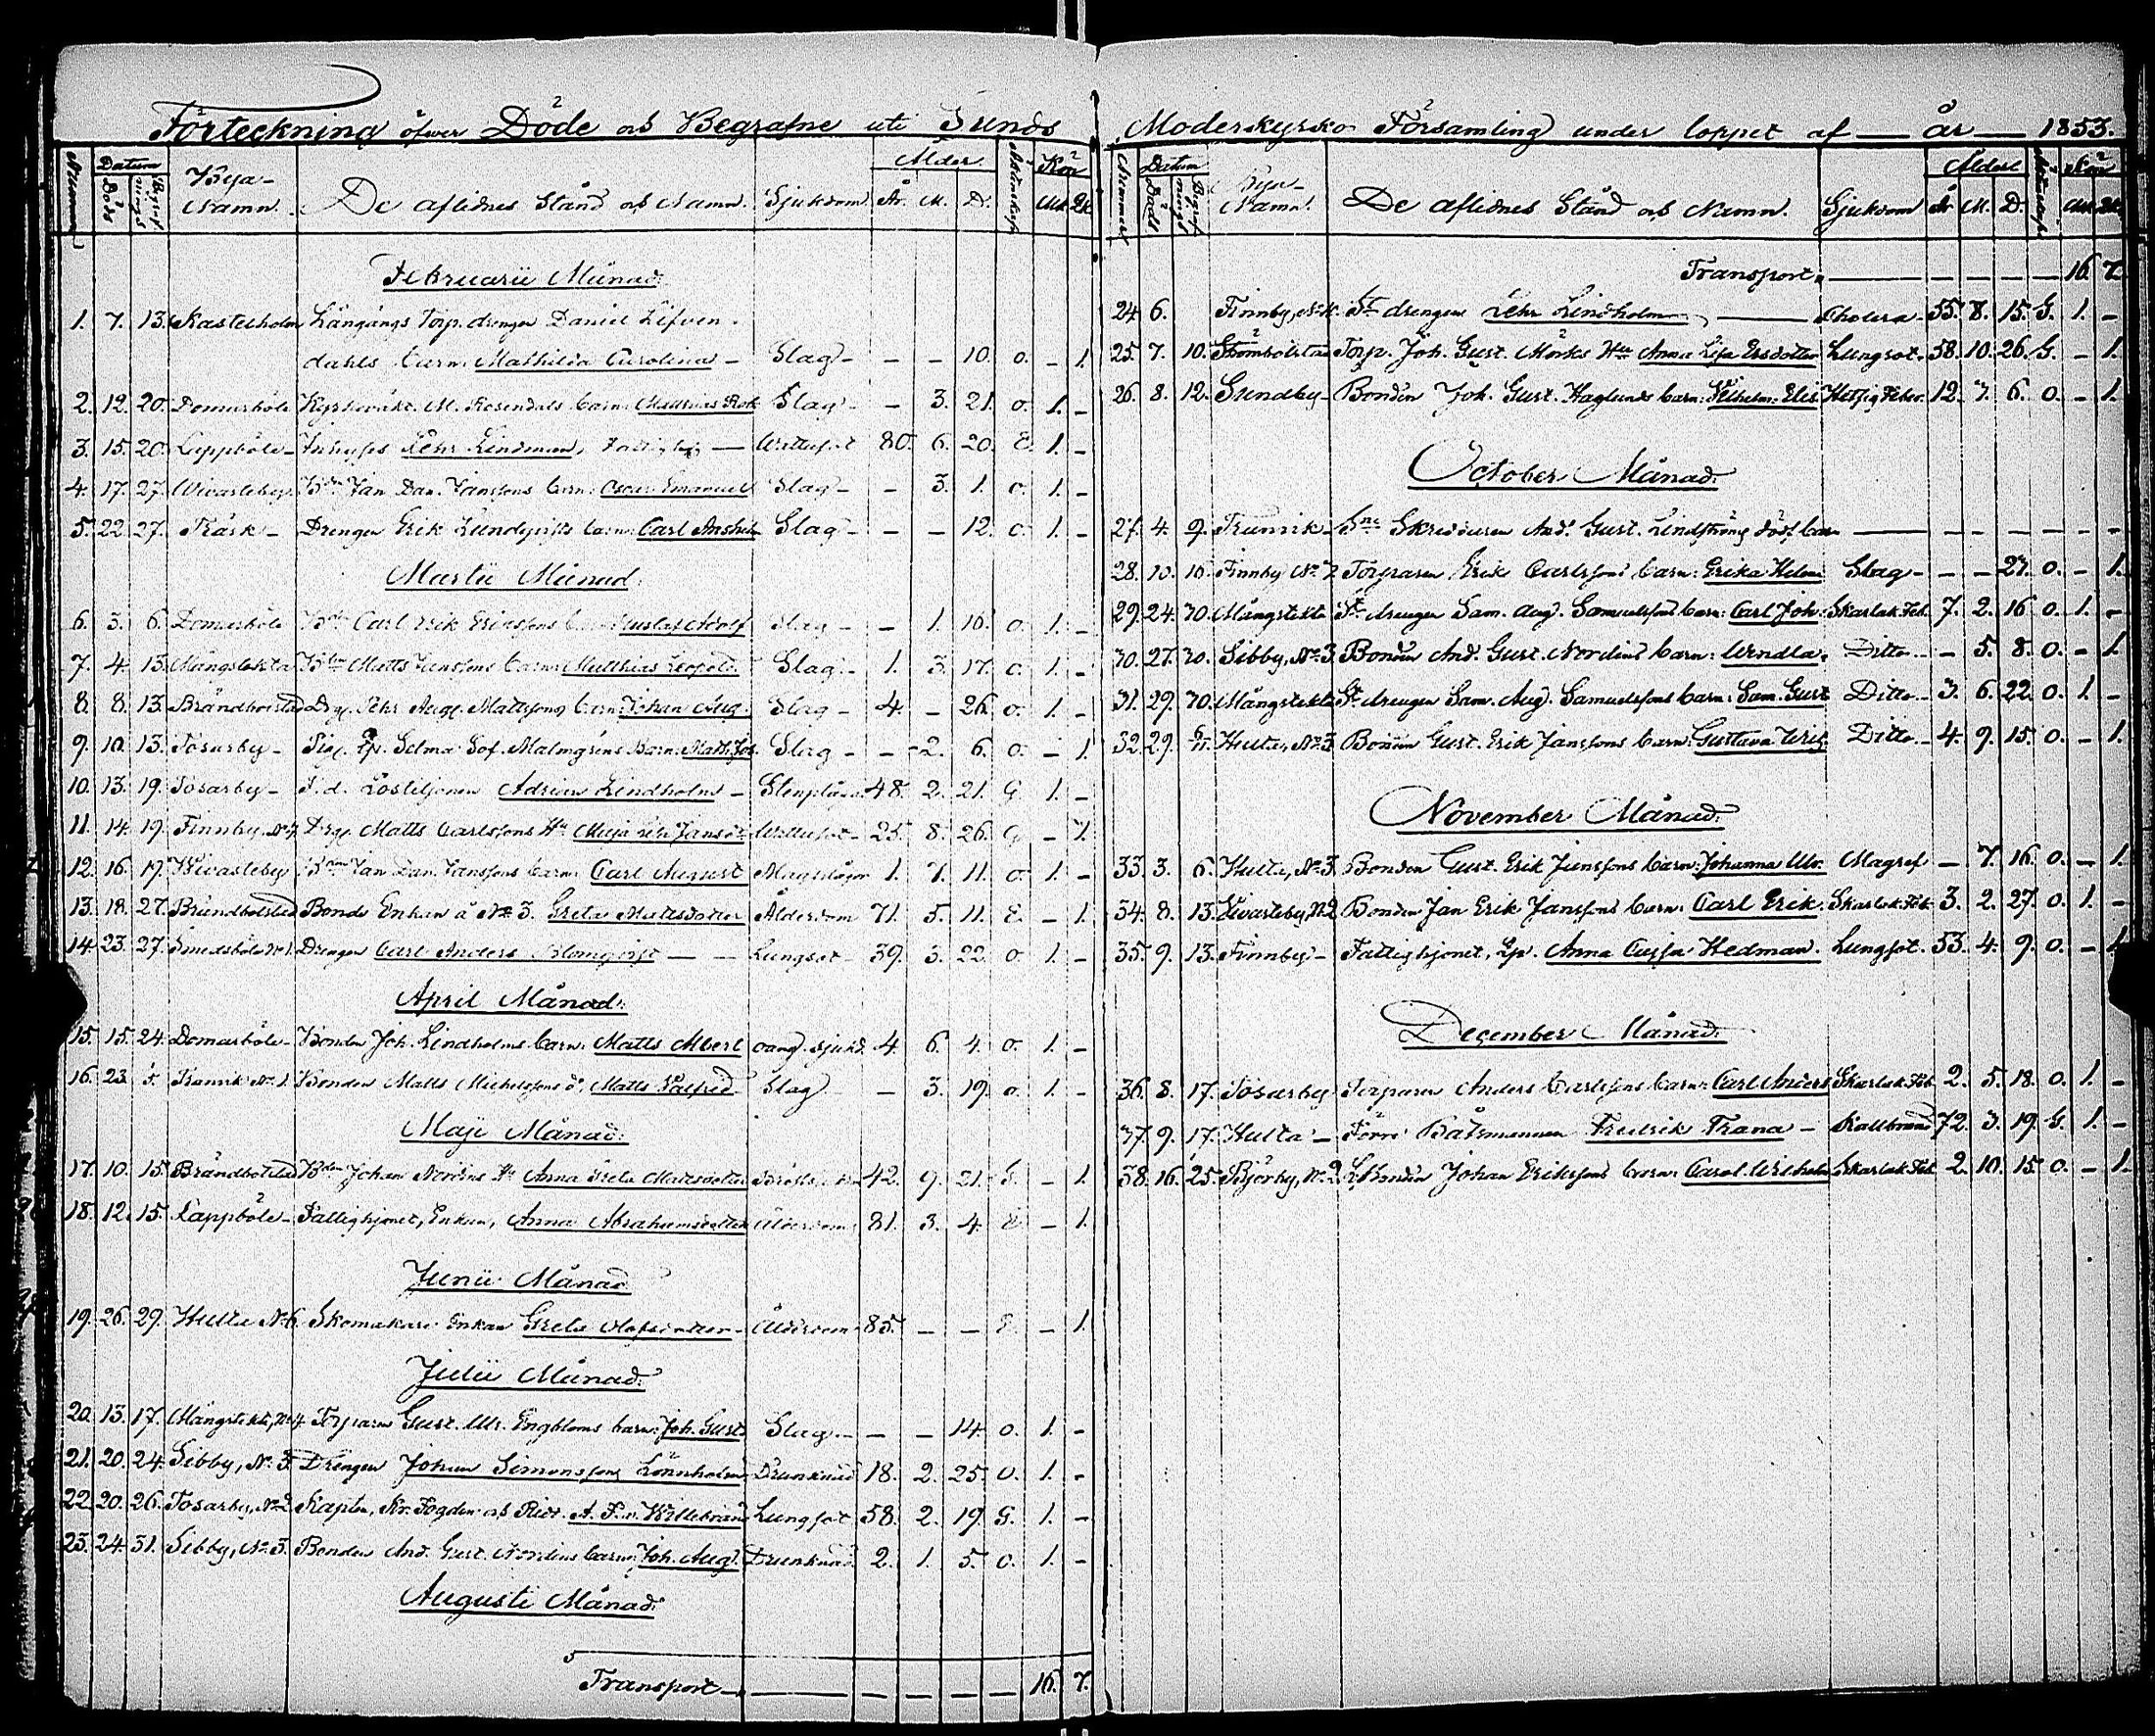 Förteckning öfwer Döde och Begrafne uti Sunds
Nummer Datum Död Begrafnings Bya-Namn. De aflidnes Stånd och Namn. Sjukdom Ålder År. M. D. Kön Mk. Qk.
Februarii Månad.
1. 7. 13. Kastelholm Långängs Torp. drengen Daniel Lifven-
dahls barn: Mathilda Carolina – Slag – – – 10. o. – 1.
2. 12. 20. Domarböle Kyrkovákt. M. Rosendals barn: Matthias Slag – – 3. 21. o. 1. –
3. 15. 20. Lappböle – Inhyses Pehr Lindman, Fattighj. — Wattusot 80. 6. 20. E. 1. –
4. 17. 27. Wivasteby. Bdn Jan Dan. Jansſons barn: Oscar Emanuel Slag – – 3. 1. o. 1. –
5. 22. 27. Träsk – Drengen Erik Lundqvists barn: Carl Anshelm Slag – – – 12. o. 1. –
Martii Månad.
6. 3. 6. Domarböle Bdn Carl Erik Ericssons barn Gustaf Adolf Slag – – 1. 16. o. 1. –
7. 4. 13. Mångstekta Bdn Matts Jansſons barn: Matthias Leopold. Slag – 1. 3. 17. o. 1. –
8. 8. 13. Brändbolstad Drg. Pehr Aug. Mattsſons barn: Johan Aug. Slag – 4. – 26. o. 1. –
9. 10. 13. Tosarby – Pig. Selma Sof. Malmgréns Barn: Slag – – 2. 6. o. – 1.
10. 13. 19. Tosarby – F. d. Postiljonen Adrian Lindholm – 48. 2. 21. G. 1. –
11. 14. 19. Finnby, Drg. Matts Carlsſons Hu Maja Lisa Jansdr Wattusot – 25. 8. 26. G. – 1.
12. 16. 17. Wivasteby Bdn Jan Dan. Jansſons barn: Carl August Magplågor 1. 7. 11. o. 1. –
13. 18. 27. Brändbolstad Bonde Enkan å No 3. Greta Mattsdotter Ålderdom 71. 5. 11. E. – 1.
14. 23. 27. Smedsböle No 1. Drengen Carl Anders Blomqvist — — Lungsot – 39. 3. 22. o. 1. –
April Månad.
15. 15. 24. Domarböle – Bonden Joh. Lindholms barn: Matts Albert oang. sjukd. 4. 6. 4. o. 1. –
16. 23. 5. Tranvik No 1. Bonden Matts Michelsſons d:o Matts Valfrid Slag – – 3. 19. o. 1. –
Maji Månad.
17. 10. 15. Brändbolstad Bdn Johan Nordéns Hu Anna Greta Mattsdotter 42. 9. 21. G. – 1.
18. 12. 15. Lappböle – Fattighjonet, Enkan, Anna Abrahamsdotter Ålderdom 81. 3. 4. E. – 1.
Junii Månad.
19. 26. 29. Hulta No 6. Skomakare Enkan Greta Olofsdotter – Ålderdom – 85. – – E. – 1.
Julii Månad.
20. 13. 17. Mångstekta, No 4. Torparen Gust. Ulr. Engbloms barn: Joh. Gust. Slag. – – – 14. o. 1. –
21. 20. 24. Sibby, No 3. Drengen Johan Simonsſons Lönnholm Drunknad 18. 2. 25. o. 1. –
22. 20. 26. Tosarby, No 2. Kapten, Kr. Fogden och Ridd. A. F. v. Willebrand Lungsot 58. 2. 19. G. 1. –
23. 24. 31. Sibby, No 3. Bonden And. Gust. Nordéns barn: Joh. Aug. Drunknad 2. 1. 5. o. 1. –
Augusti Månad.
Transport — 16. 7.
Moderkyrko Församling under loppet af — år — 1853.
Nummer Datum Död Begrafnings Bya-Namn. De aflidnes Stånd och Namn. Sjukdom Ålder År M. D. Kön Mk. Qk.
Transport. — 16. 7.
24. 6. Finnby, St. drengen Pehr Lindholm — Cholera – 55. 8. 15. G. 1. –
25. 7. 10. Strömbolstad Torp. Joh. Gust. Mörks Hu Anna Lisa Ersdotter Lungsot. 58. 10. 26. G. – 1.
26. 8. 12. Sundby – Bonden Joh. Gust. Haglunds barn: Vilhelm. Elis. Hetsig Feber. 12. 7. 6. o. – 1.
October Månad.
27. 4. 9. Tranvik – Skräddaren And. Gust. Lindströms dödf. barn — – – – – –
28. 10. 16. Finnby No 2 Torparen Erik Carlsſons barn: Erika Helena Slag – – – 27. o. – 1.
29. 24. 30. Mångstekta St. drengen Sam. Aug. Samuelsſons barn: Carl Joh. Skarlak. Feb. 7. 2. 16. o. 1. –
30. 27. 30. Sibby, No 3. Bonden And. Gust. Nordéns barn: Wendla. Ditto – – 5. 8. o. – 1.
31. 29. 30. Mångstekta St. drengen Sam. Aug. Samuelsſons barn: Sam. Gust. Ditto – 3. 6. 22. o. 1. –
32. 29. Hulta, No 3. Bonden Gust. Erik Jansſons barn: Gustava Ditto – 4. 9. 15. o. – 1.
November Månad.
33. 3. 6. Hulta, No 3. Bonden Gust. Erik Jansſons barn: Johanna Ulr. Magref – 7. 16. o. – 1.
34. 8. 13. Wivasteby, No 2. Bonden Jan Erik Jansſons barn: Carl Erik. Skarlak. Feb. 3. 2. 27. o. 1. –
35. 9. 13. Finnby – Fattighjonet, Lp. Anna Cajsa Hedman. Lungsot. 53. 4. 9. o. – 1.
December Månad.
36. 8. 17. Tosarby Torparen Anders Carlsſons barn: Carl Anders Skarlak. Feb. 2. 5. 18. o. 1. –
37. 9. 17. Hulta – Förre Båtsmannen Fredrik Trana – Kallbrand 72. 3. 19. G. 1. –
38. 16. 25. Björby, No 2. Bonden Johan Eriksſons barn: Carol. Wilhelm. Skarlak. Feb. 2. 10. 15. o. – 1.